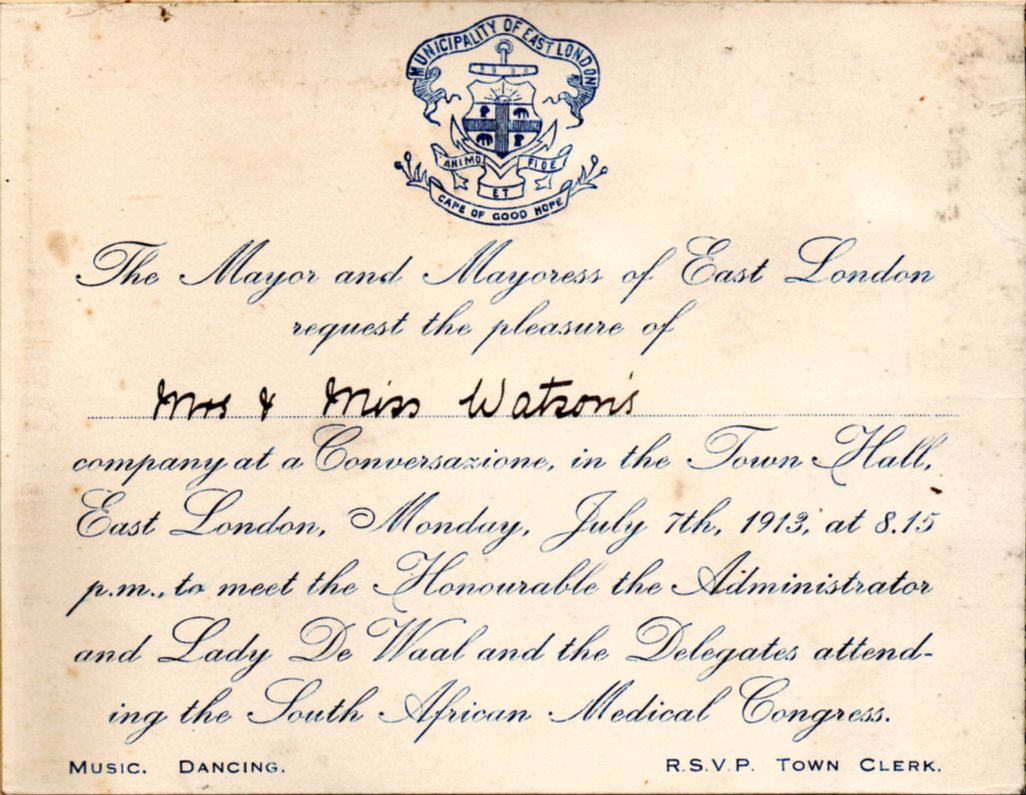 MUNICIPALITY OF EAST LONDON
ANIMO ET FIDE
CAPE OF GOOD HOPE
The Mayor and Mayoress of East London
request the pleasure of
Mrs & Miss Watson's
company at a Conversazione, in the Town Hall,
East London, Monday, July 7th, 1913, at 8.15
p.m., to meet the Honourable the Administrator
and Lady De Waal and the Delegates attend-
ing the South African Medical Congress.
MUSIC. DANCING. R.S.V.P. TOWN CLERK.